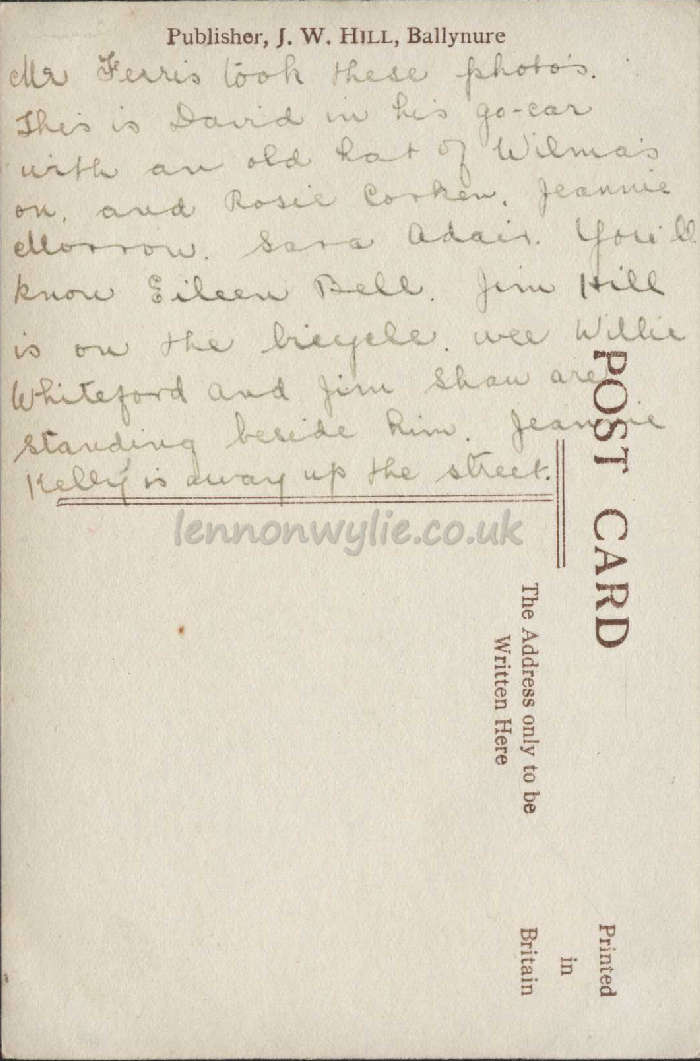 Publisher, J. W. HILL, Ballynure
Mr Ferris took these photo's.
This is David in his go-car
with an old hat of Wilma's
on, and Rosie Corken. Jeannie
Morrow. Sara Adair. You'll
know Eileen Bell. Jim Hill
is on the bicycle. wee Willie
Whiteford and Jim Shaw are
standing beside him. Jeannie
Kelly is away up the street.
lennonwylie.co.uk
POST CARD
The Address only to be
Written Here
Printed
in
Britain